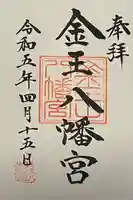 奉拝
金王八幡宮
令和五年四月十五日